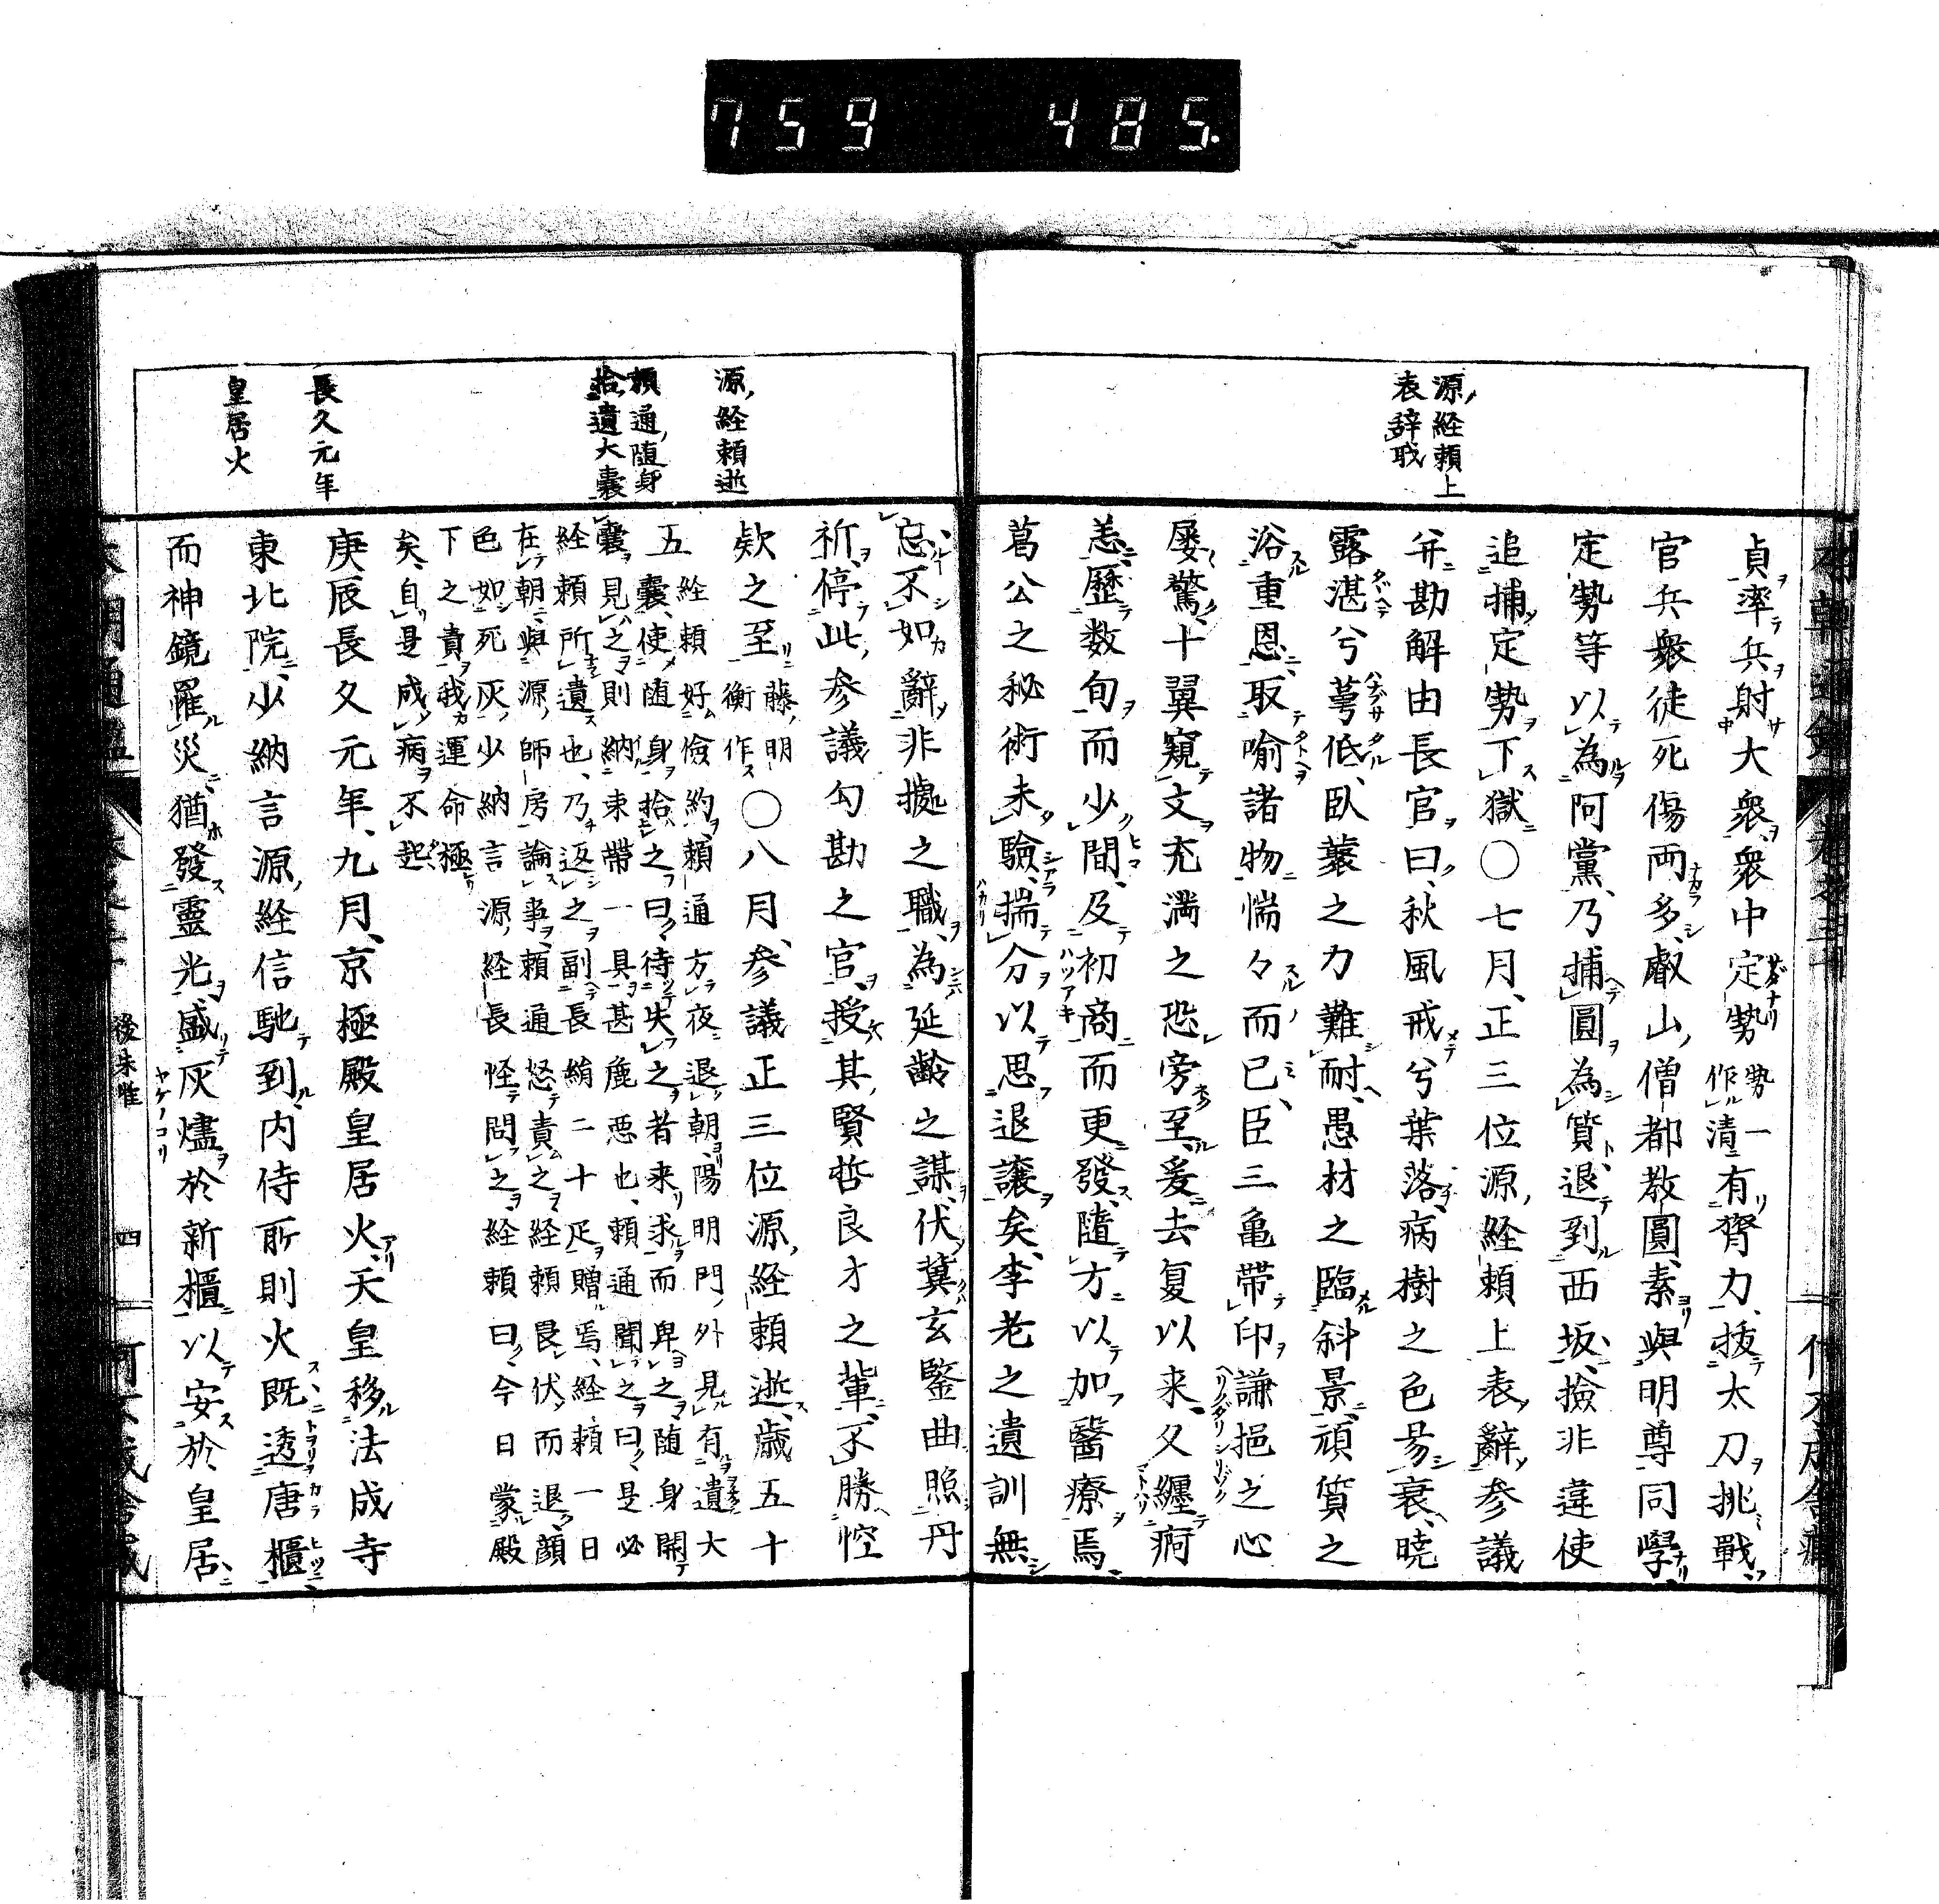 759 485.
源経頼上
表辞職
貞率兵射大衆衆中定勢勢一作清有膂力拔太刀挑戰
官兵衆徒死傷両多叡山僧都教圓素與明尊同學
定勢等以為阿黨乃捕圓為質退到西坂撿非違使
追捕定勢下獄〇七月正三位源経頼上表辭参議
并勘解由長官曰秋風戒兮葉落病樹之色易衰暁
露湛兮蕚低臥蘘之力難耐愚材之臨斜景頑質之
浴重恩取喻諸物惴々而已臣三亀帯印謙挹之心
屡驚十翼窺文充満之恐旁至爰去夏以来久纏痾
恙歷数旬而少間及初商而更發隨方以加醫療焉
葛公之秘術未驗揣分以思退譲矣李老之遺訓無
源経頼逝
頼通随身
拾遺大嚢
長久元年
皇居火
忘不如辭非據之職為延齢之謀伏冀玄鑒曲照丹
祈停此参議勾勘之官授其賢哲良才之輩不勝悾
欵之至藤明衡作〇八月参議正三位源経頼逝歳五十
五経頼好儉約頼通方夜退朝陽明門外見有遺大
嚢使随身拾之曰待失之者来求而卑之随身開
嚢見之則納束帯一具甚麁悪也頼通聞之曰是必
経頼所遺也乃返之副長絹二十疋贈焉経頼一日
在朝與源師房論事頼通怒責之経頼畏伏而退顔
色如死灰少納言源経長怪問之経頼曰今日蒙殿
下之責我運命極
矣自是成病不起
庚辰長久元年九月京極殿皇居火天皇移法成寺
東北院少納言源経信馳到内侍所則火既透唐櫃
而神鏡罹災猶發靈光盛灰燼於新櫃以安於皇居
後朱雀 四